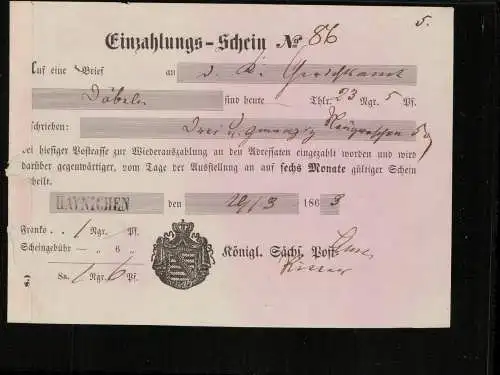 5.
Einzahlungs-Schein № 86
Auf eine Brief an d. K. Gerichtsamt
Döbeln sind heute Thlr. 23 Ngr. 5 Pf.
schrieben: Drei u. zwanzig Neugroschen 5
bei hiesiger Postcasse zur Wiederauszahlung an den Adressaten eingezahlt worden und wird
darüber gegenwärtiger, vom Tage der Ausstellung an auf sechs Monate gültiger Schein
theilt.
HAYNICHEN den 19/3 1863
Franko 1 Ngr. Pf.
Scheingebühr - „ 6 „
Sa. 1 Ngr. 6 Pf.
Königl. Sächs. Post